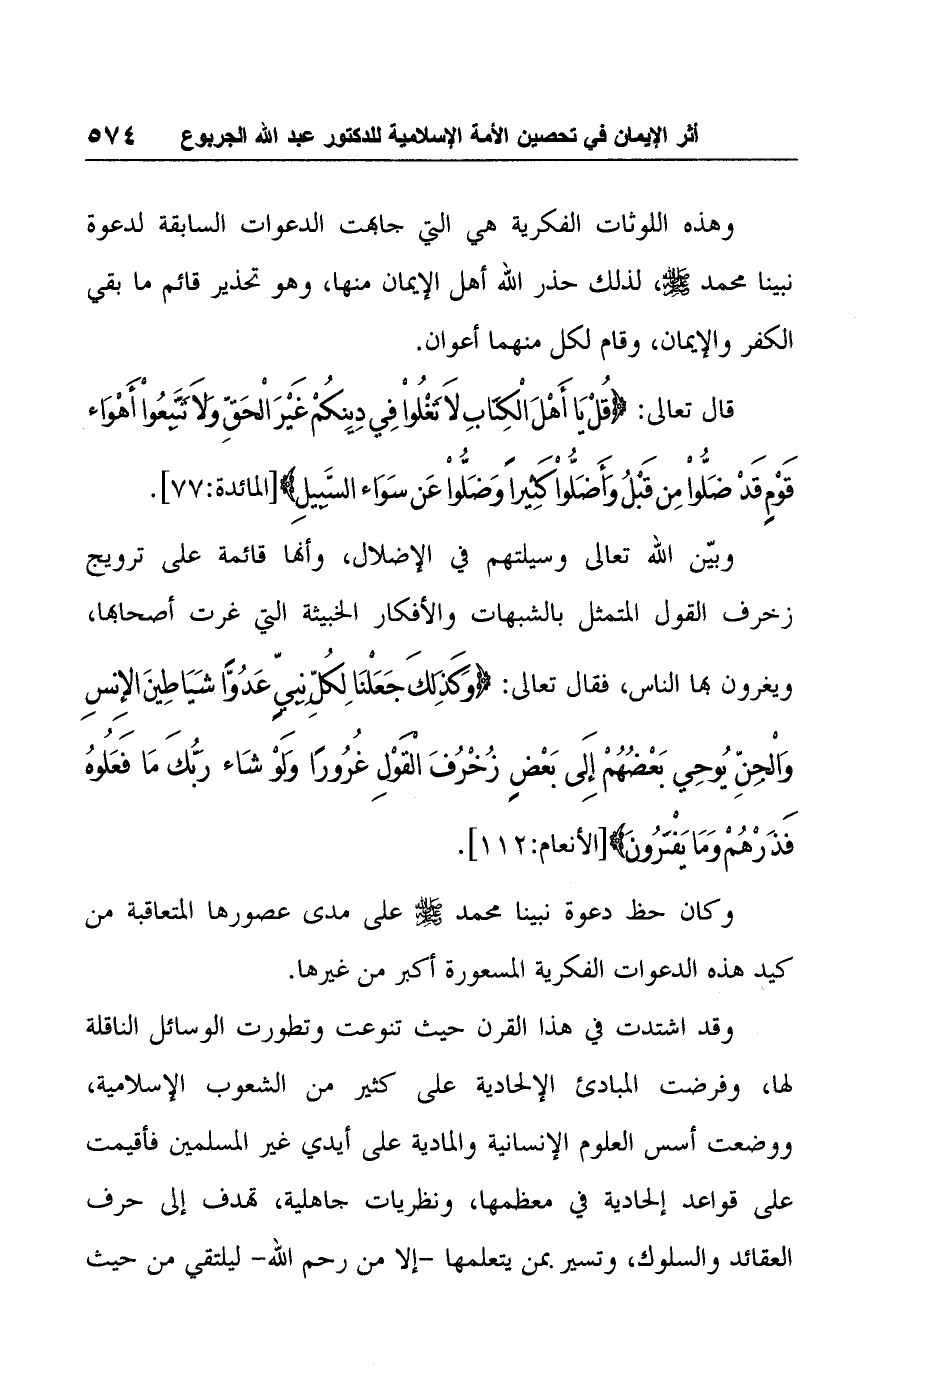 أثر الإيمان في تحصين الأمة الإسلامية للدكتور عبد الله الجربوع ٥٧٤
وهذه اللوثات الفكرية هي التي جابهت الدعوات السابقة لدعوة
نبينا محمد ﷺ، لذلك حذر الله أهل الإيمان منها، وهو تحذير قائم ما بقي
الكفر والإيمان، وقام لكل منهما أعوان.
قال تعالى: ﴿قُلْ يَا أَهْلَ الْكِتَابِ لاَ تَغْلُوا فِي دِينِكُمْ غَيْرَ الْحَقِّ وَلاَ تَتَّبِعُوا أَهْوَاء
قَوْمٍ قَدْ ضَلُّوا مِن قَبْلُ وَأَضَلُّوا كَثِيراً وَضَلُّوا عَن سَوَاء السَّبِيلِ﴾[المائدة:٧٧].
وبيّن الله تعالى وسيلتهم في الإضلال، وأنها قائمة على ترويج
زخرف القول المتمثل بالشبهات والأفكار الخبيثة التي غرت أصحابها،
ويغرون بها الناس، فقال تعالى: ﴿وَكَذَلِكَ جَعَلْنَا لِكُلِّ نِبِيٍّ عَدُوًّا شَيَاطِينَ الإِنسِ
وَالْجِنِّ يُوحِي بَعْضُهُمْ إِلَى بَعْضٍ زُخْرُفَ الْقَوْلِ غُرُورًا وَلَوْ شَاء رَبُّكَ مَا فَعَلُوهُ
فَذَرْهُمْ وَمَا يَفْتَرُونَ﴾[الأنعام:١١٢].
وكان حظ دعوة نبينا محمد ﷺ على مدى عصورها المتعاقبة من
كيد هذه الدعوات الفكرية المسعورة أكبر من غيرها.
وقد اشتدت في هذا القرن حيث تنوعت وتطورت الوسائل الناقلة
لها، وفرضت المبادئ الإلحادية على كثير من الشعوب الإسلامية،
ووضعت أسس العلوم الإنسانية والمادية على أيدي غير المسلمين فأقيمت
على قواعد إلحادية في معظمها، ونظريات جاهلية، تهدف إلى حرف
العقائد والسلوك، وتسير بمن يتعلمها -إلا من رحم الله- ليلتقي من حيث